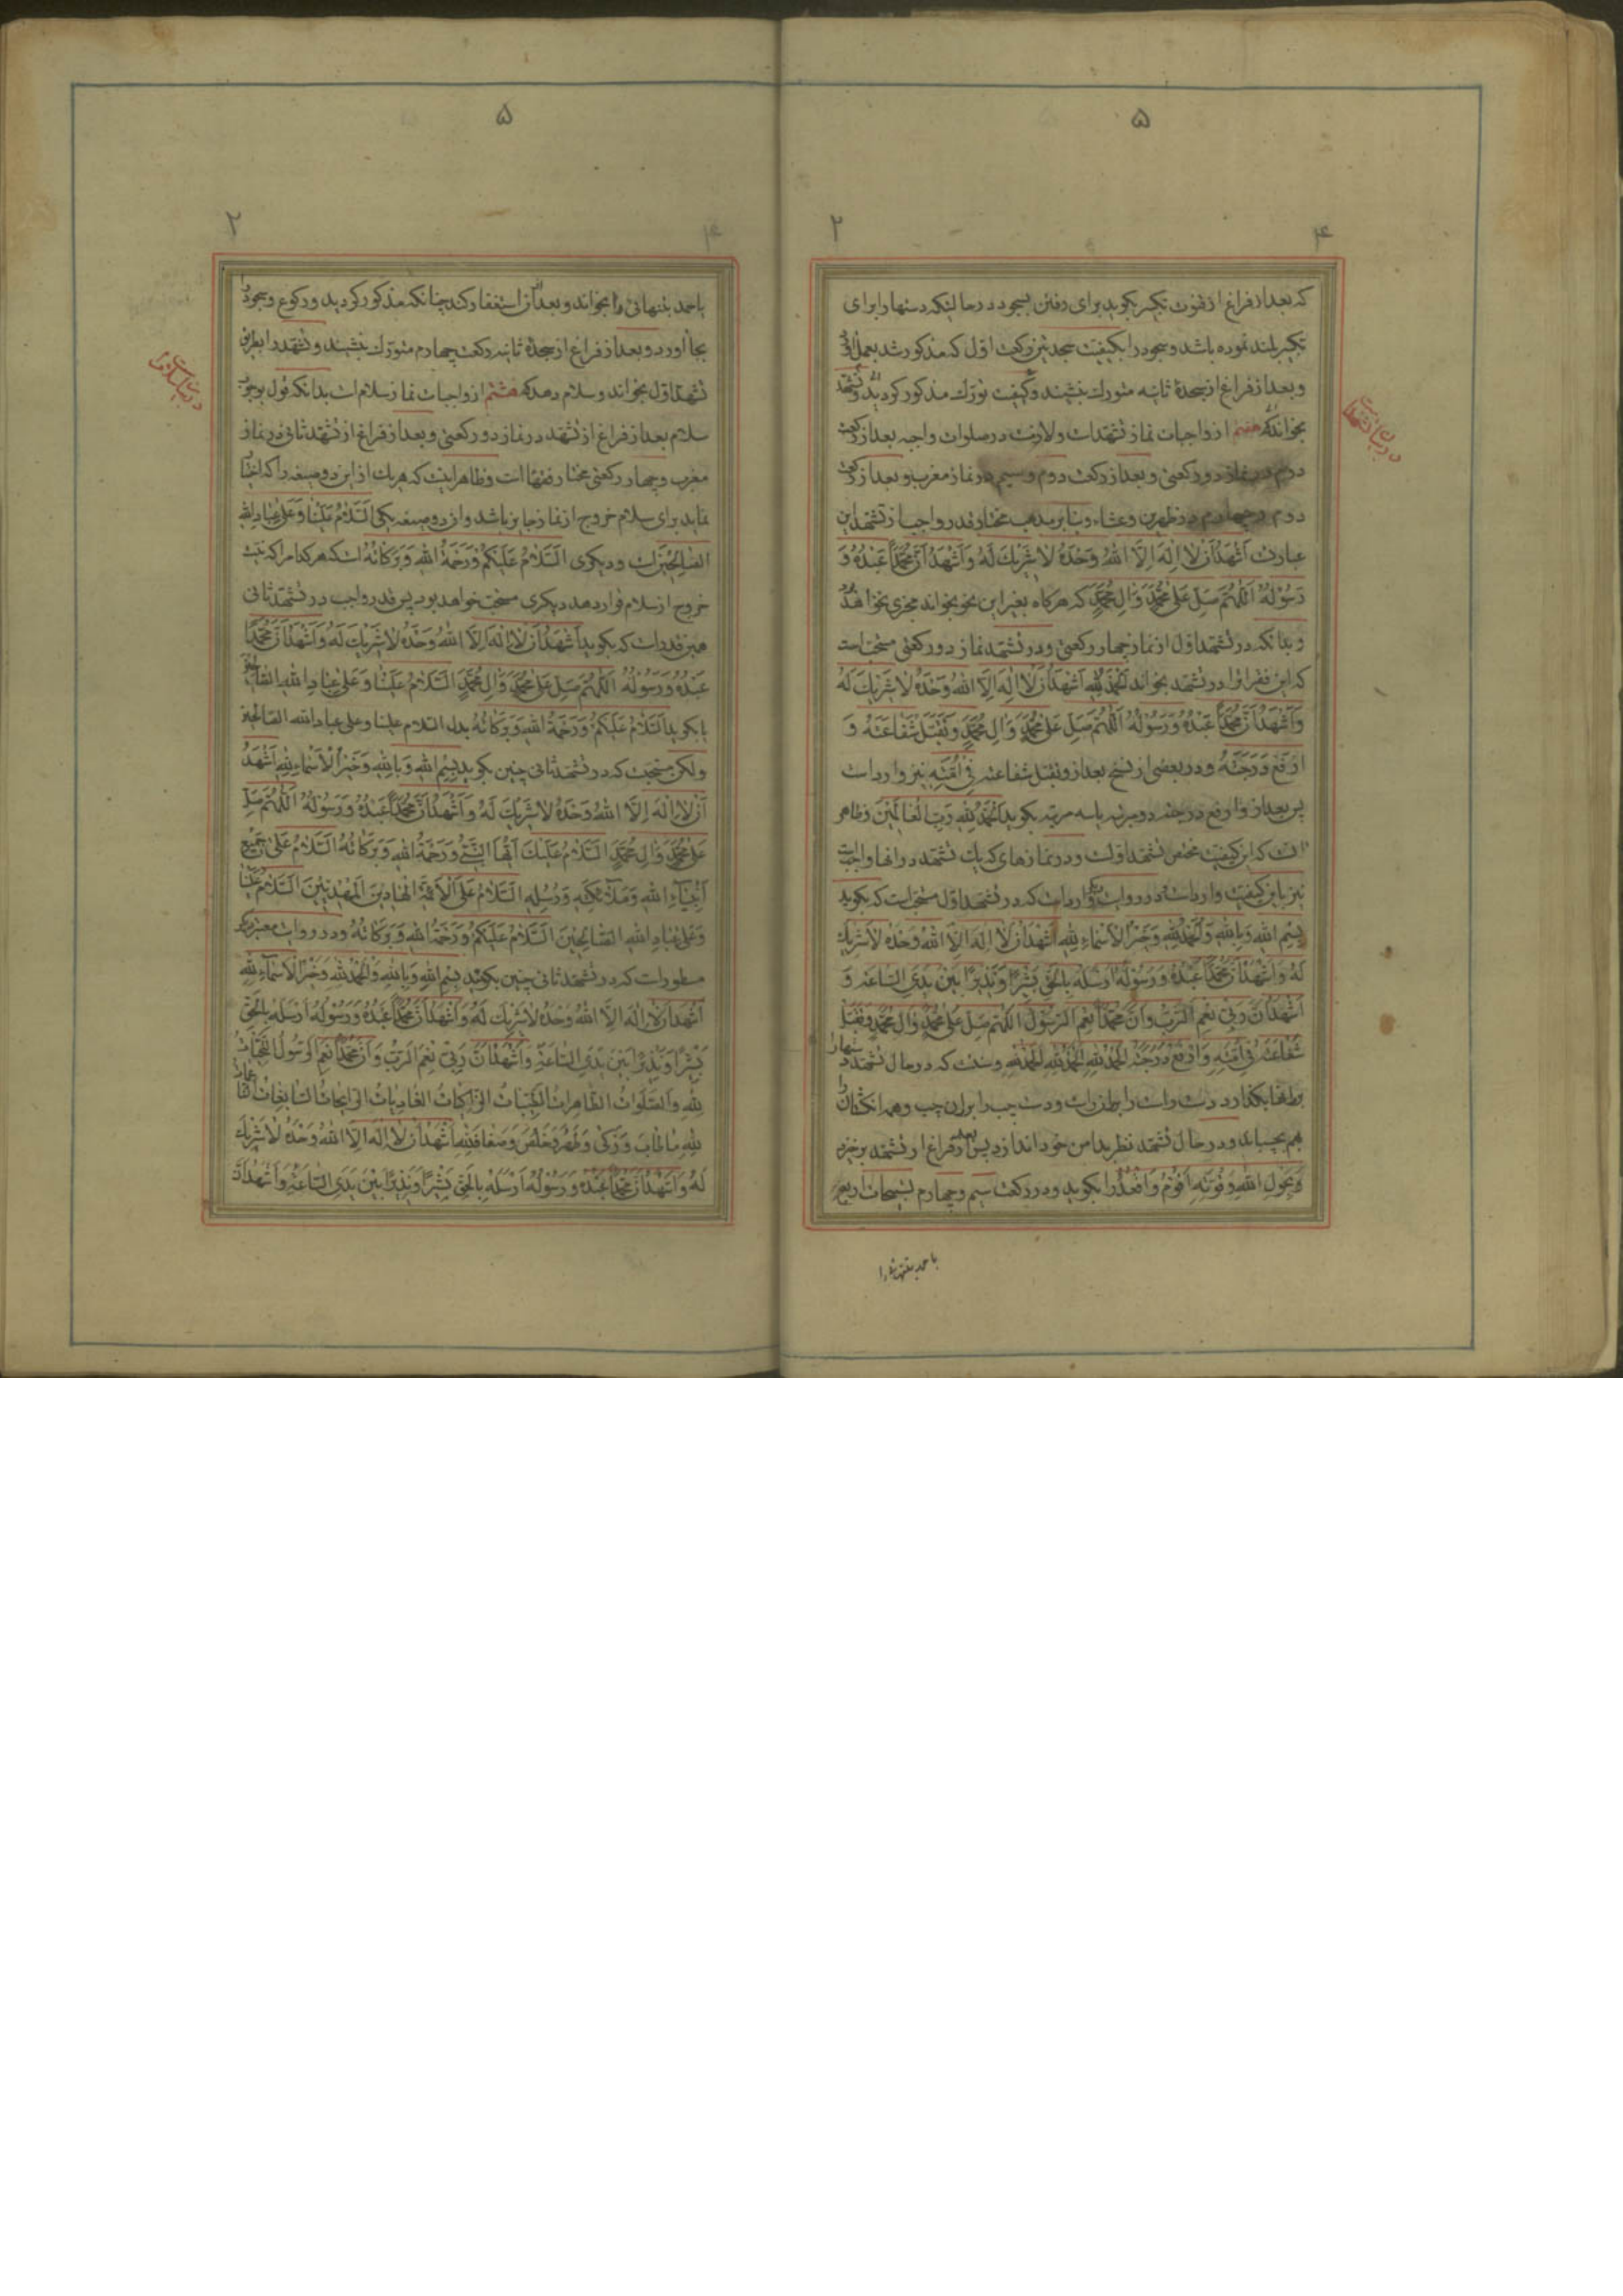 ۵
۲
۴
که بعد از فراغ از قنوت تکبیر بکوید برای رفتن بسجود در حالتیکه دستها را برای
تکبیر بلند نموده باشد و سجود را بکیفیت سجدتین رکعت اول که مذکور شد بعمل
و بعد از فراغ از سجدهٔ ثانیه متورك بنشیند و کیفیت تورك مذکور کردید و تشهد
بخواند که هفتم از واجبات نماز تشهدات ولازمست در صلوات واجبه بعد از رکعت
دوم در نماز دو رکعتی و بعد از رکعت دوم و سیم در نماز مغرب و بعد از رکعت
دوم و چهارم در ظهرین و عشاء و بنا بر مذهب مختار قدر واجب از تشهد این
عبارت اَشْهَدُ اَنْ لا اِلٰهَ اِلَّا اللهُ وَحْدَهُ لا شَرِيكَ لَهُ وَاَشْهَدُ اَنَّ مُحَمَّداً عَبْدُهُ وَ
رَسُولُهُ اَللّٰهُمَّ صَلِّ عَلىٰ مُحَمَّدٍ وَ اٰلِ مُحَمَّدٍ که هرکاه بغیر این نحو بخواند مجزی نخواهد بود
و بدانکه در تشهد اول از نماز چهار رکعتی و در تشهد نماز دو رکعتی مستحب است
که این فقرات را در تشهد بخواند اَلْحَمْدُ لِلّٰهِ اَشْهَدُ اَنْ لا اِلٰهَ اِلَّا اللهُ وَحْدَهُ لا شَرِيكَ لَهُ
وَاَشْهَدُ اَنَّ مُحَمَّداً عَبْدُهُ وَرَسُولُهُ اَللّٰهُمَّ صَلِّ عَلىٰ مُحَمَّدٍ وَ اٰلِ مُحَمَّدٍ وَتَقَبَّلْ شَفَاعَتَهُ وَ
ارْفَعْ دَرَجَتَهُ و در بعضی از نسخ بعد از وتقبل شفاعته فِي اُمَّتِهِ نیز وارد است
پس بعد از وارفع درجته دو مرتبه یا سه مرتبه بکوید اَلْحَمْدُ لِلّٰهِ رَبِّ الْعَالَمِينَ و ظاهر
انست که این کیفیت مختص تشهد اولست و در نمازهای که یك تشهد در انها واجبست
نیز باین کیفیت وارد است و در روایت وارد است که در تشهد اول مستحب است که بکوید
بِسْمِ اللهِ وَبِاللهِ وَالْحَمْدُ لِلّٰهِ وَخَيْرُ الْاَسْمَاءِ لِلّٰهِ اَشْهَدُ اَنْ لا اِلٰهَ اِلَّا اللهُ وَحْدَهُ لا شَرِيكَ
لَهُ وَاَشْهَدُ اَنَّ مُحَمَّداً عَبْدُهُ وَرَسُولُهُ اَرْسَلَهُ بِالْحَقِّ بَشِيراً وَنَذِيراً بَيْنَ يَدَيِ السَّاعَةِ وَ
اَشْهَدُ اَنَّ رَبِّي نِعْمَ الرَّبُّ وَاَنَّ مُحَمَّداً نِعْمَ الرَّسُولُ اَللّٰهُمَّ صَلِّ عَلىٰ مُحَمَّدٍ وَ اٰلِ مُحَمَّدٍ وَتَقَبَّلْ
شَفَاعَتَهُ فِي اُمَّتِهِ وَارْفَعْ دَرَجَتَهُ اَلْحَمْدُ لِلّٰهِ اَلْحَمْدُ لِلّٰهِ اَلْحَمْدُ لِلّٰهِ و سنت که در حال تشهد
بکذارد دست راست را بطرف راست و دست چپ را بران چپ و همه انکشتان را
بهم بچسباند و در حال تشهد نظر بدامن خود اندازد پس بعد از فراغ از تشهد برخیزد
و بِحَوْلِ اللهِ وَقُوَّتِهِ اَقُومُ وَاَقْعُدُ را بکوید و در رکعت سیم و چهارم تسبیحات اربع
در بیان تشهد است
۵
۲
۴
یا حمد بتنهائی را بخواند و بعد از ان استغفار کند چنانکه مذکور کردید و رکوع و سجود را
بجا آورد و بعد از فراغ از سجدهٔ ثانیه رکعت چهارم متورك بنشیند و تشهد را بطریق
تشهد اول بخواند و سلام دهد که هشتم از واجبات نماز سلام است بدانکه قول بوجوب
سلام بعد از فراغ از تشهد در نماز دو رکعتی و بعد از فراغ از تشهد ثانی در نماز
مغرب و چهار رکعتی مختار فقها است و ظاهر اینست که هریك از این دو صیغه را که اختیار
نماید برای سلام خروج از نماز جایز باشد و از دو صیغه یکی اَلسَّلامُ عَلَيْنَا وَعَلىٰ عِبَادِ اللهِ
الصَّالِحِينَ است و دیکری اَلسَّلامُ عَلَيْكُمْ وَرَحْمَةُ اللهِ وَبَرَكَاتُهُ است که هرکدام را که نیت
خروج از سلام قرار دهد دیکری مستحب خواهد بود پس قدر واجب در تشهد ثانی
همین قدر است که بکوید اَشْهَدُ اَنْ لا اِلٰهَ اِلَّا اللهُ وَحْدَهُ لا شَرِيكَ لَهُ وَاَشْهَدُ اَنَّ مُحَمَّداً
عَبْدُهُ وَرَسُولُهُ اَللّٰهُمَّ صَلِّ عَلىٰ مُحَمَّدٍ وَ اٰلِ مُحَمَّدٍ اَلسَّلامُ عَلَيْنَا وَعَلىٰ عِبَادِ اللهِ الصَّالِحِينَ
یا بکوید اَلسَّلامُ عَلَيْكُمْ وَرَحْمَةُ اللهِ وَبَرَكَاتُهُ بدل السلام علینا وعلی عباد الله الصالحین
ولکن مستحبست که در تشهد ثانی چنین بکوید بِسْمِ اللهِ وَبِاللهِ وَخَيْرُ الْاَسْمَاءِ لِلّٰهِ اَشْهَدُ
اَنْ لا اِلٰهَ اِلَّا اللهُ وَحْدَهُ لا شَرِيكَ لَهُ وَاَشْهَدُ اَنَّ مُحَمَّداً عَبْدُهُ وَرَسُولُهُ اَللّٰهُمَّ صَلِّ
عَلىٰ مُحَمَّدٍ وَ اٰلِ مُحَمَّدٍ اَلسَّلامُ عَلَيْكَ اَيُّهَا النَّبِيُّ وَرَحْمَةُ اللهِ وَبَرَكَاتُهُ اَلسَّلامُ عَلىٰ جَمِيعِ
اَنْبِيَاءِ اللهِ وَمَلَائِكَتِهِ وَرُسُلِهِ اَلسَّلامُ عَلَى الْاَئِمَّةِ الْهَادِينَ الْمَهْدِيِّينَ اَلسَّلامُ عَلَيْنَا
وَعَلىٰ عِبَادِ اللهِ الصَّالِحِينَ اَلسَّلامُ عَلَيْكُمْ وَرَحْمَةُ اللهِ وَبَرَكَاتُهُ و در روایت معتبر دیکر
مسطور است که در تشهد ثانی چنین بکوید بِسْمِ اللهِ وَبِاللهِ وَالْحَمْدُ لِلّٰهِ وَخَيْرُ الْاَسْمَاءِ لِلّٰهِ
اَشْهَدُ اَنْ لا اِلٰهَ اِلَّا اللهُ وَحْدَهُ لا شَرِيكَ لَهُ وَاَشْهَدُ اَنَّ مُحَمَّداً عَبْدُهُ وَرَسُولُهُ اَرْسَلَهُ بِالْحَقِّ
بَشِيراً وَنَذِيراً بَيْنَ يَدَيِ السَّاعَةِ وَاَشْهَدُ اَنَّ رَبِّي نِعْمَ الرَّبُّ وَاَنَّ مُحَمَّداً نِعْمَ الرَّسُولُ اَلتَّحِيَّاتُ
لِلّٰهِ وَالصَّلَوَاتُ الطَّاهِرَاتُ الطَّيِّبَاتُ الزَّاكِيَاتُ الْغَادِيَاتُ الرَّائِحَاتُ السَّابِغَاتُ النَّاعِمَاتُ
لِلّٰهِ مَا طَابَ وَزَكىٰ وَطَهُرَ وَخَلَصَ وَصَفَا فَلِلّٰهِ اَشْهَدُ اَنْ لا اِلٰهَ اِلَّا اللهُ وَحْدَهُ لا شَرِيكَ
لَهُ وَاَشْهَدُ اَنَّ مُحَمَّداً عَبْدُهُ وَرَسُولُهُ اَرْسَلَهُ بِالْحَقِّ بَشِيراً وَنَذِيراً بَيْنَ يَدَيِ السَّاعَةِ وَاَشْهَدُ اَنَّ
یا حمد بتنهائی را